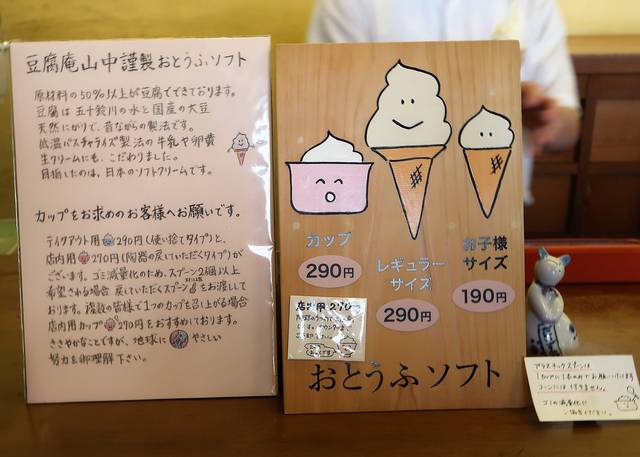 豆腐庵山中謹製おとうふソフト
原材料の50%以上が豆腐でできております。
豆腐は五十鈴川の水と国産の大豆
天然にがりで、昔ながらの製法です。
低温パスチャライズ製法の牛乳や卵黄
生クリームにも、こだわりました。
目指したのは、日本のソフトクリームです。
カップをお求めのお客様へお願いです。
テイクアウト用290円(使い捨てタイプ)と、
店内用290円(陶器の戻していただくタイプ)が
ございます。ゴミ減量化のため、スプーン2個以上
希望される場合 戻していただくスプーンをお渡しして
おります。複数の皆様で1つのカップを召し上がる場合
店内用カップ290円をおすすめしております。
ささやかなことですが、地球にやさしい
努力を御理解下さい。
カップ
290円
レギュラー
サイズ
290円
お子様
サイズ
190円
店内用290円
おとうふソフト
プラスチックスプーンは
1カップに1本のみでお願いいたします
コーンには付きません。
ゴミの減量化に
ご協力ください。